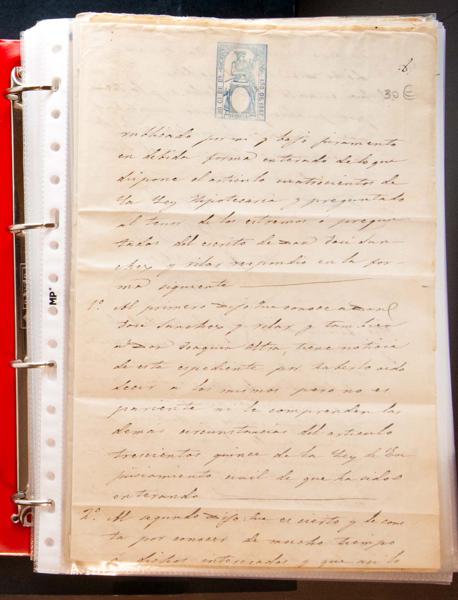 30 €
rubricado por mi y bajo juramento
en debida forma enterado de lo que
dispone el articulo cuatrocientos de
la Ley Hipotecaria y preguntado
al tenor de los estremos o pregun
tados del escrito de Don José San-
chez y rilas respondio en la for-
ma siguiente
1º. Al primero dijo: Que conoce a Don
José Sanchez y rilas y tambien
a Don Joaquin, tiene noticia
de este expediente por haberlo oido
decir a los mismos pero no es
pariente ni le comprenden las
demas circunstancias del articulo
trescientos quince de la Ley de En
juiciamiento civil de que ha sido
enterando
2º. Al segundo dijo: Que es cierto y le cons
ta por conocer de mucho tiempo
á dichos interesados y que en lo
MP